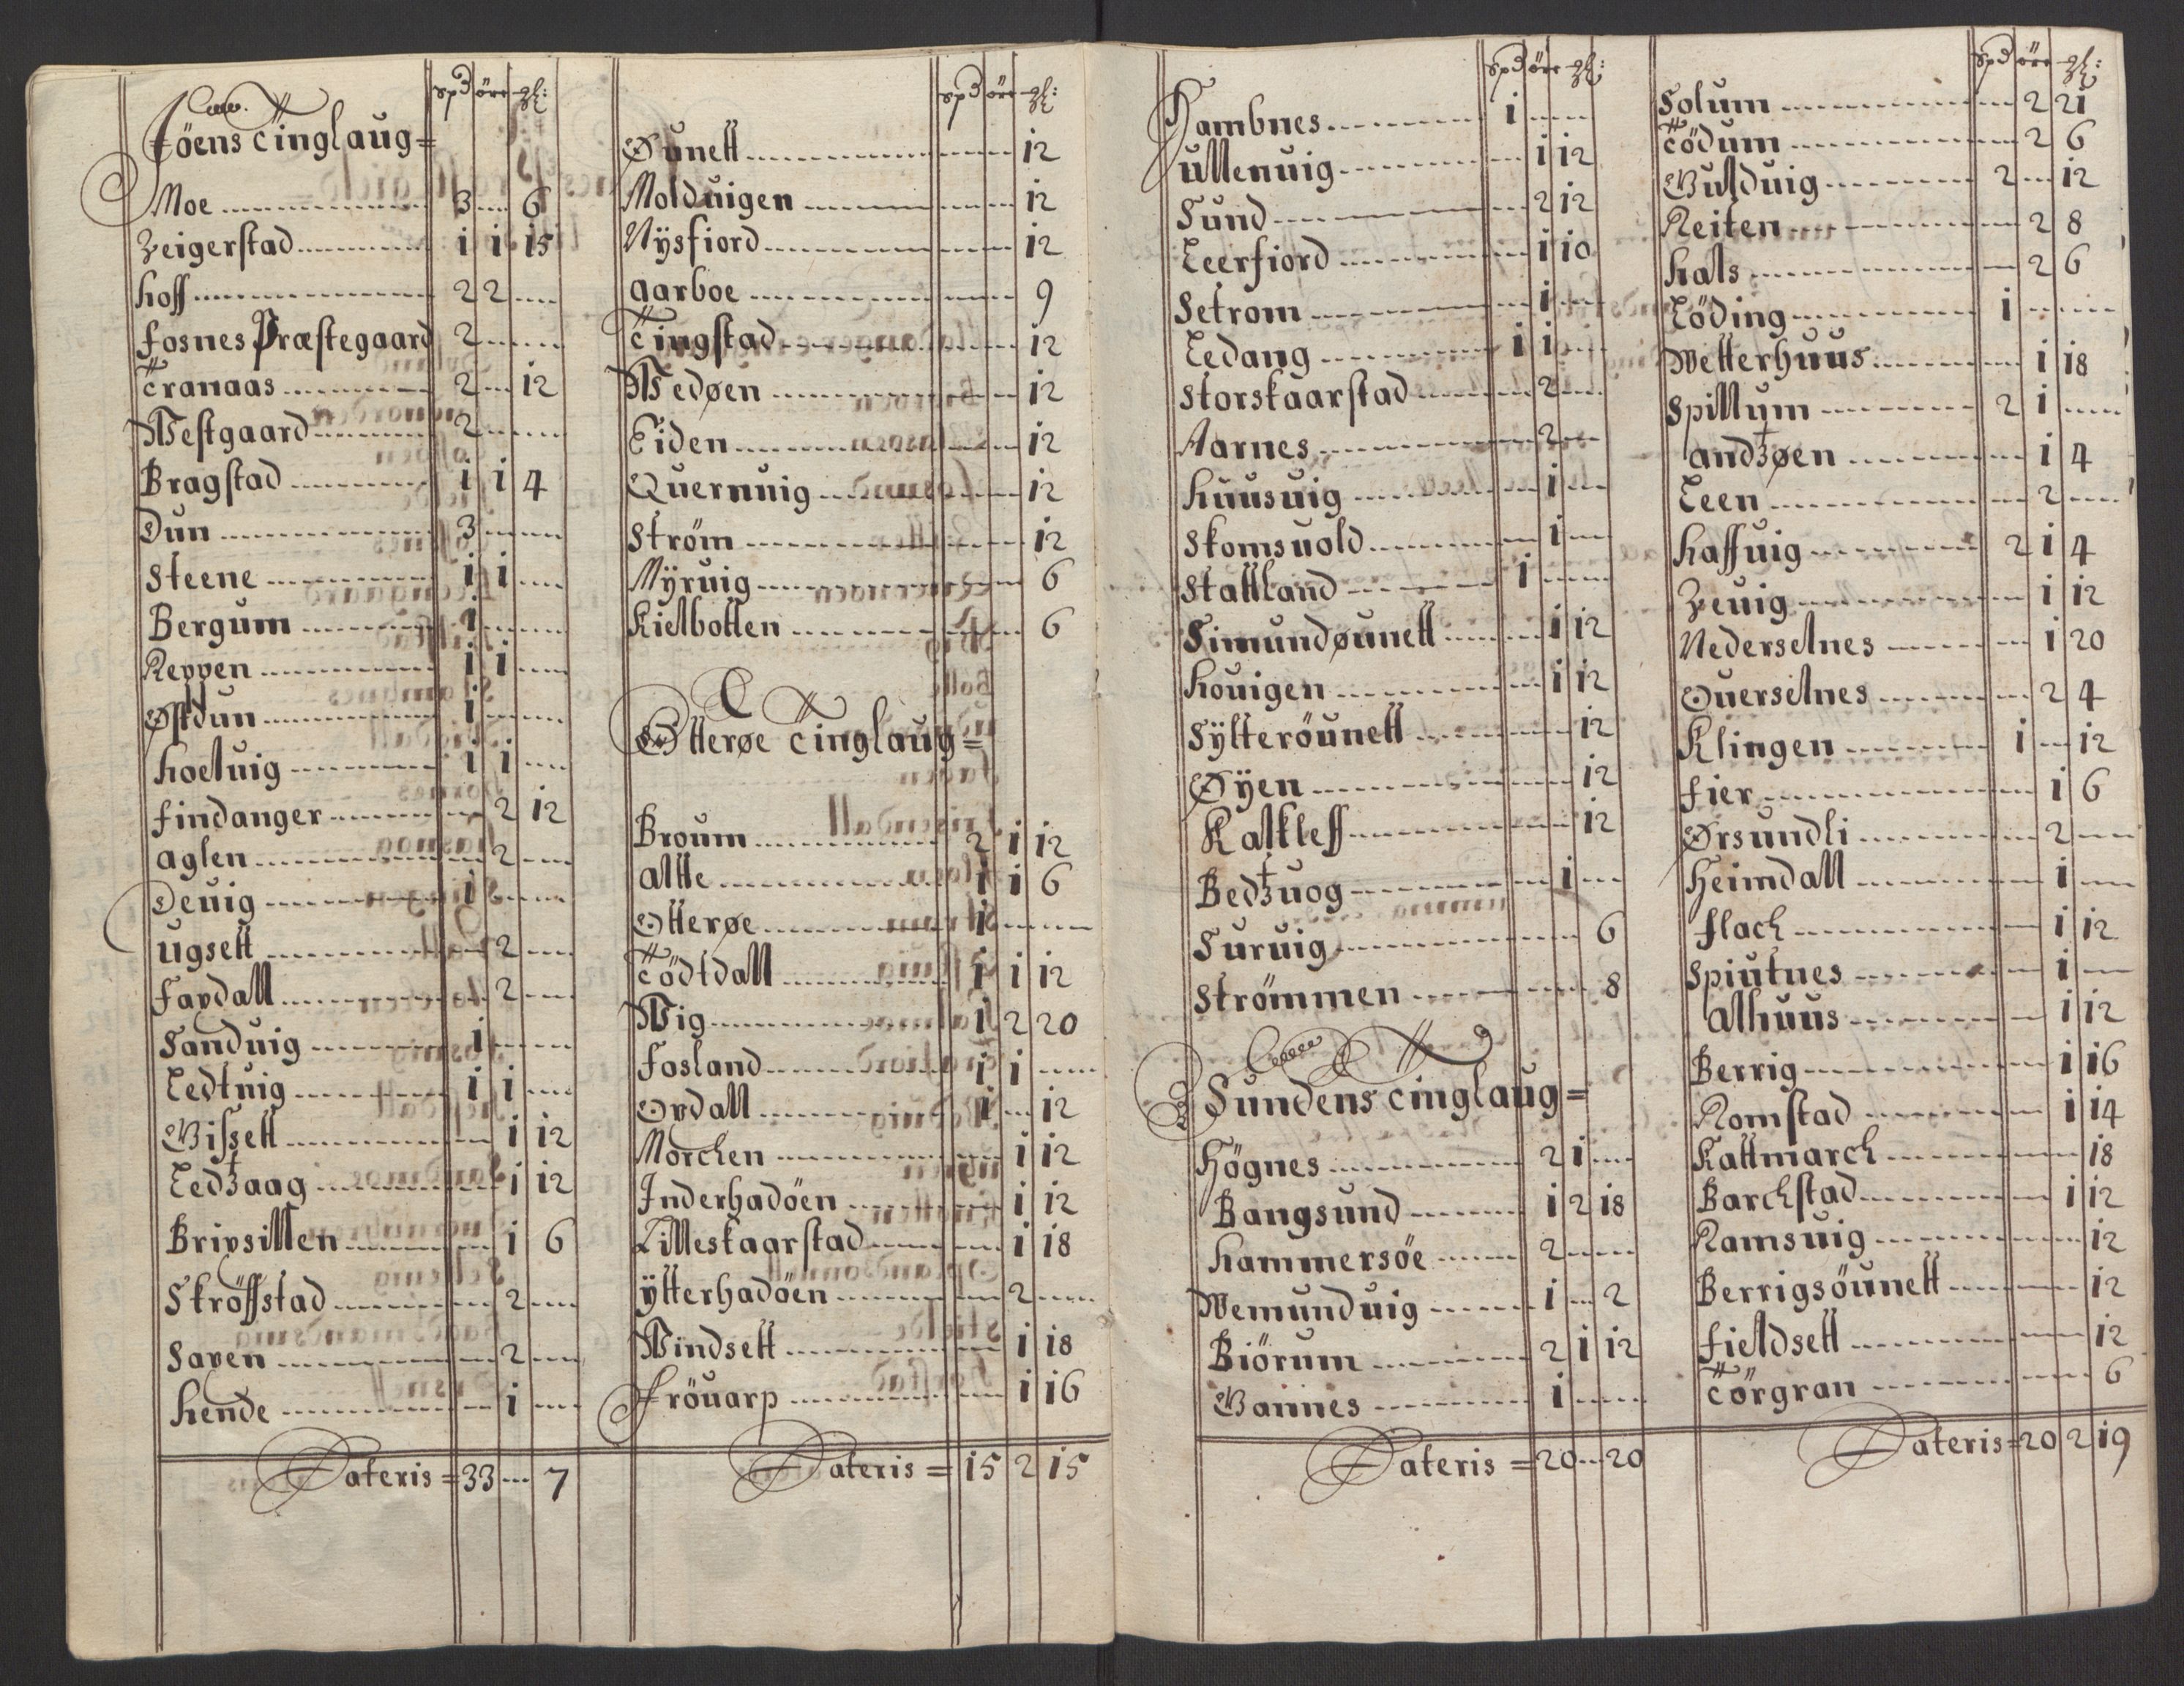 spd öre gl:
Föens tinglaug=
Moe 3 6
Zeigerstad 1 1 15
hoff 2 2
fosnes Præstegaard 2
Tranaas 2 12
Westgaard 2
Bragstad 1 1 4
Dun 3
Steene 1 1
Bergum 1
Reppen 1 1
Østdun 1
hoeluig 1 1
findanger 2 12
aglen 2
Deuig 1
ugsett 2
fardall 2
Sanduig 1
Leduig 1 1
Bissett 1 12
Ledtzaag 1 12
Bripsillen 1 6
Skröffstad 2
Saxen 2
hende 1
Lateris = 33 7
spd öre gl:
Øunett 12
Molduigen 12
Nysfiord 12
aarboe 9
Tingstad 12
Wedøen 12
Eiden 12
Quernuig 12
Ström 12
Myruig 6
Kielbotten 6
Otterøe tinglaug=
Broum 2 1 12
alte 1 1 6
Otterøe 1
Tödtdall 1 1 12
Wig 1 2 20
fosland 1 1
Opdall 1 12
Morchen 1 12
Inderhadöen 1 12
Lilleskaarstad 1 18
ytterhadöen 2
Windsett 1 18
fröuarp 1 16
Lateris = 15 2 15
spd öre gl:
Hambnes 1
ullenuig 1 12
Sund 2 12
Leerfiord 1 10
Setrom 1
Ledang 1 1
Storskaarstad 2
Aarnes 2
huusuig 1
Skomsuold 1
Stattland 1
Simundøunett 1 12
houigen 1 12
Sylteröunett 12
Øyen 12
Kalkleff 12
Bedtzuog 1
Suruig 6
Strömmen 8
Sundens tinglaug=
Högnes 2 1
Bangsund 1 2 18
hammersöe 2
Wemunduig 1 2
Biörum 2 1 12
Bannes 1
Lateris = 20 20
spd öre gl:
Solum 2 21
Tödum 2 6
Bulduig 2 12
Reiten 2 8
hals 2 6
Löding 1
Wetterhuus 1 18
Spillum 2 1
andtzøen 1 4
Leen 2
haffuig 2 1 4
Zeuig 1 12
Nederselnes 1 20
Ouerselnes 2 4
Klingen 1 12
fier 1 6
Ørsundli 2
Heimdall 1
flach 1 12
Spiutnes 1
alhuus 1 12
Berrig 1 16
Romstad 1 14
Kattmarch 18
Barchstad 1 12
Ramsuig 12
Berrigsöunett 12
fieldsett 12
Törgran 6
Lateris = 20 2 19